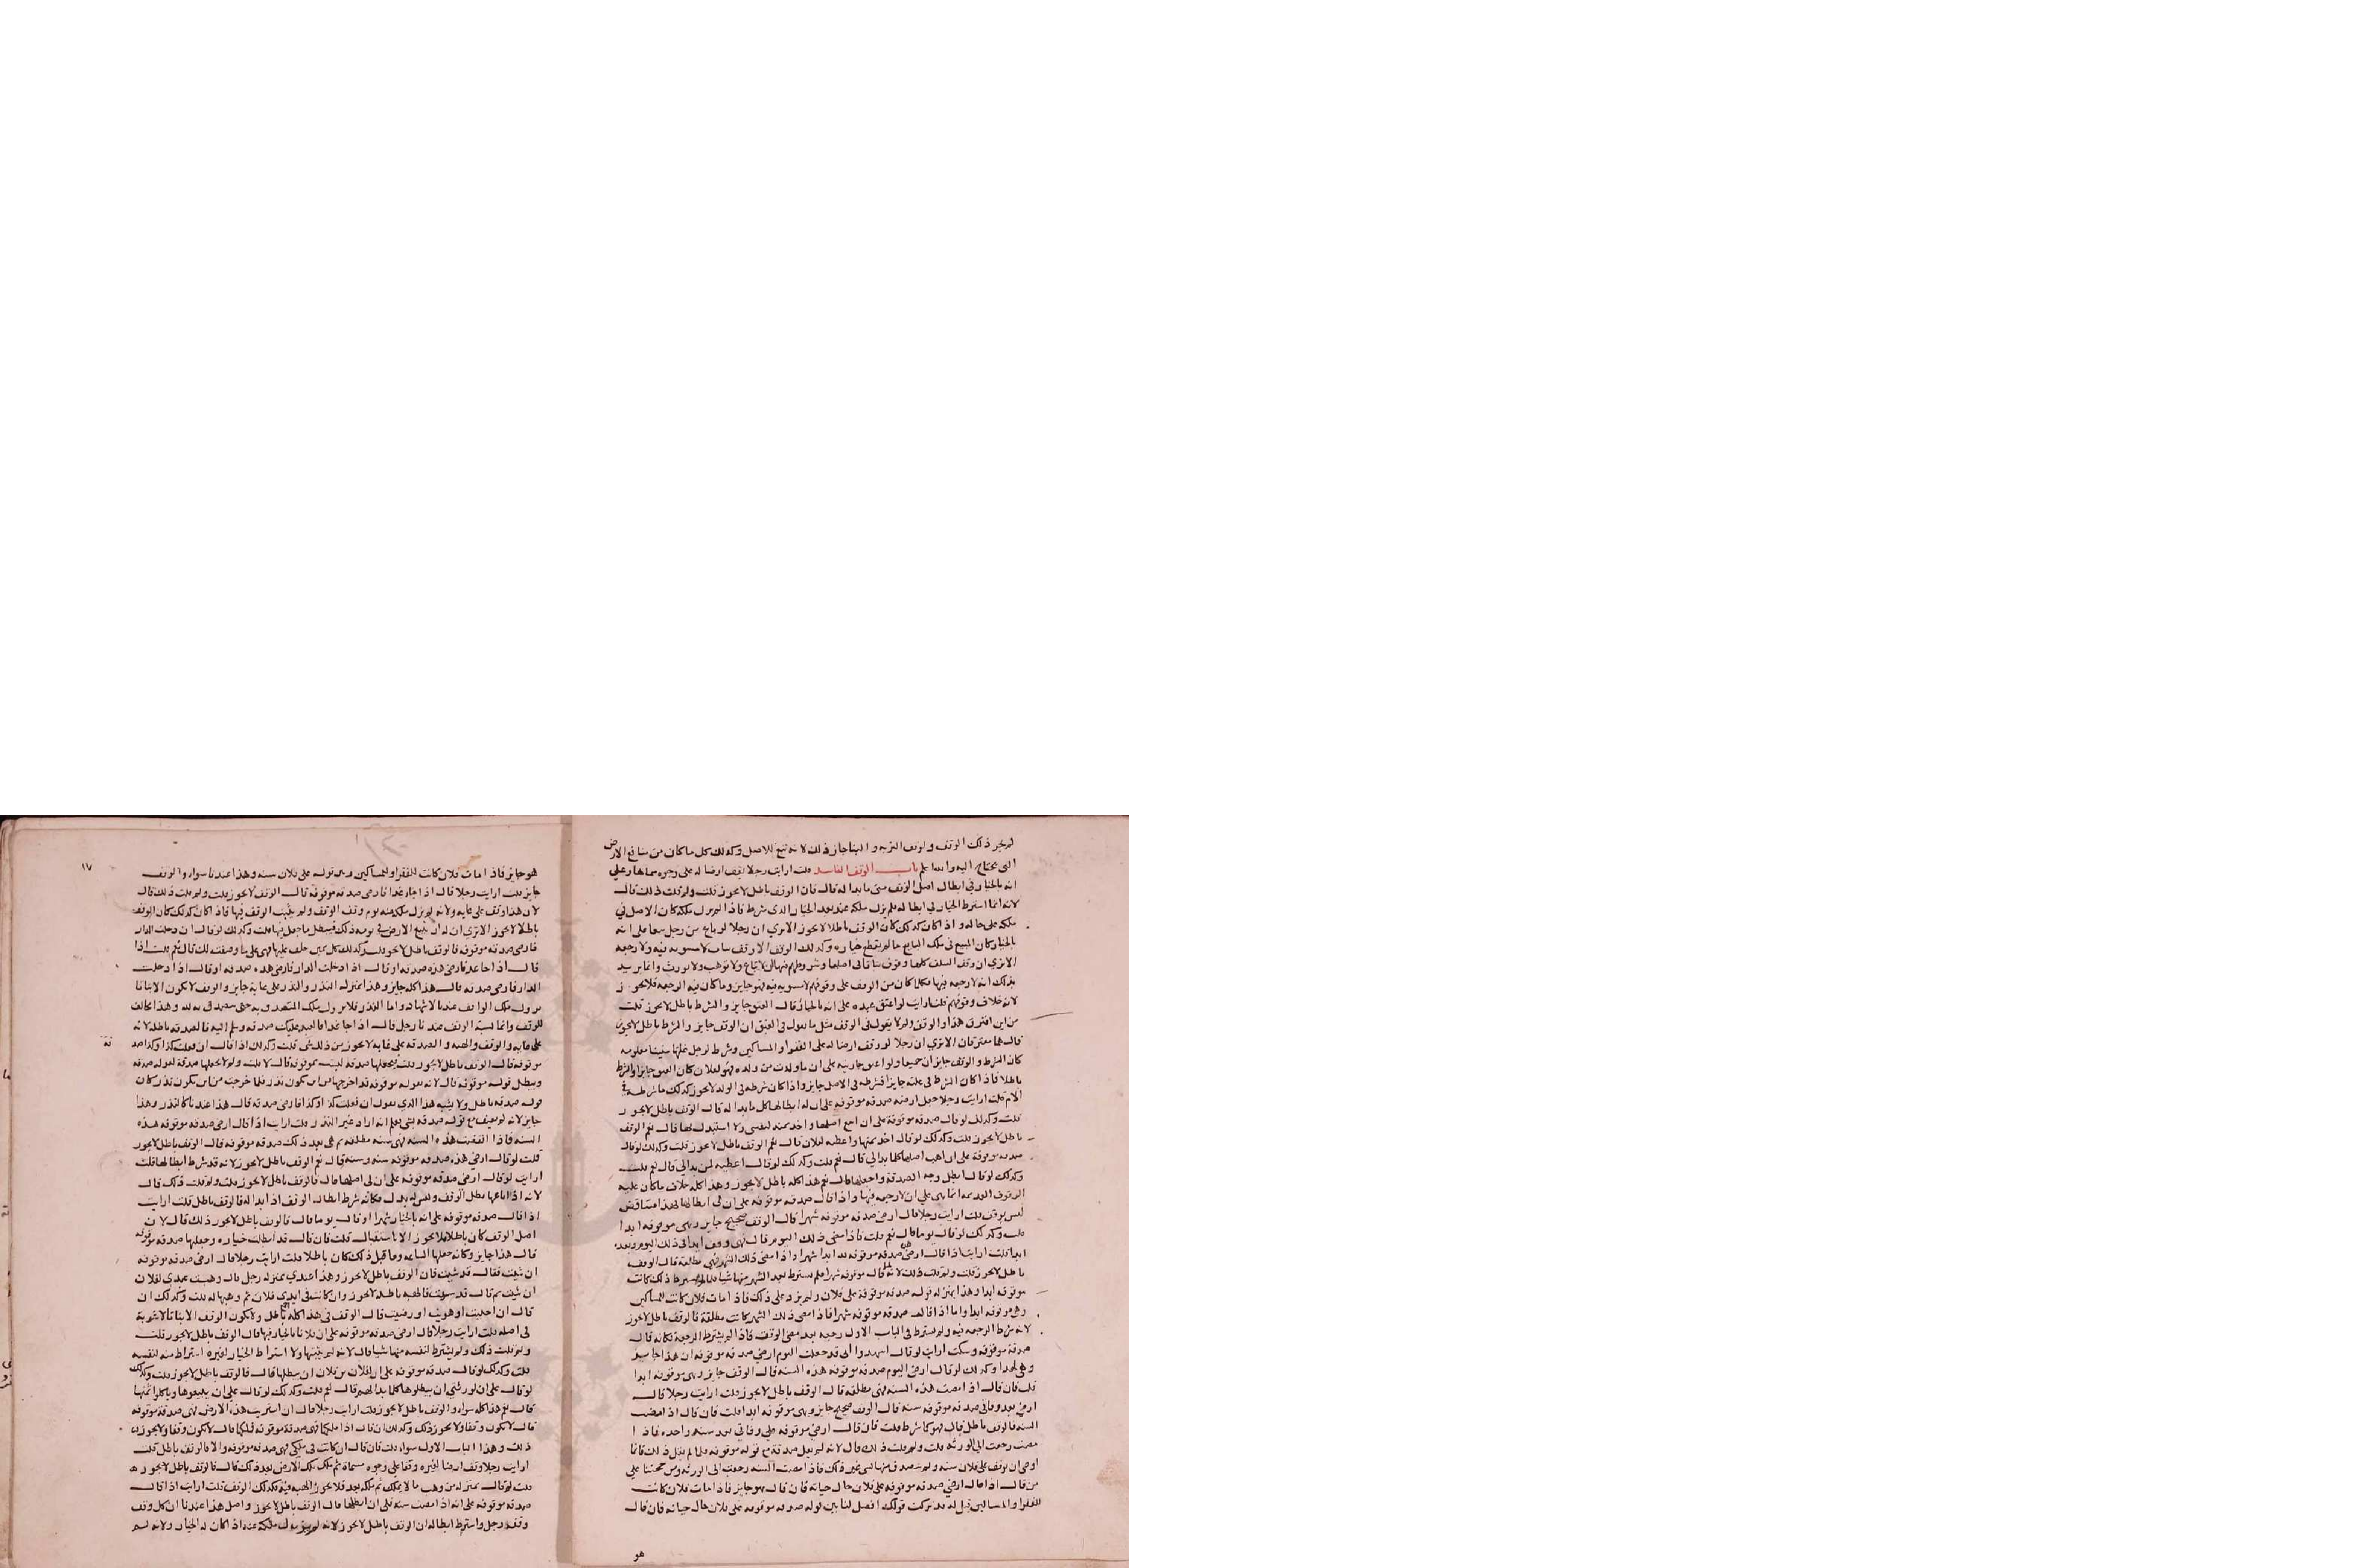 لم يجز ذلك الوقف ولو وقف التربة والبنا جاز ذلك لانه تبع للاصل وكذلك كل ما كان من منافع الارض
التي يحتاج اليه والله اعلم باب الوقف الفاسد قلت ارايت رجلا وقف ارضا له على وجوه سماها وعلى
انه بالخيار في ابطال اصل الوقف متى ما بدا له قال فان الوقف باطل لا يجوز قلت ولم قلت ذلك قال
لانه انما اشترط الخيار لي ابطاله فلم يزل ملكه عنه بعد الخيار الذي شرط فاذا لم يزل ملكه كان الاصل في
ملكه على حاله واذا كان كذلك كان الوقف باطلا لا يجوز الا ترى ان رجلا لو باع من رجل بيعا على انه
بالخيار كان المبيع في ملك البايع ما لم يقطع خياره وكذلك الوقف الا وقف بتات لا مثنوية فيه ولا رجعة
الا ترى ان وقف السلف كلها وقوف بتاتا في اصلها وشروطهم فيها ان لا تباع ولا توهب ولا تورث وانما يريد
بذلك انه لا رجعة فيها فكلما كان من الوقف على وقوفهم لا مثنوية فيه فهو جايز وما كان فيه الرجعة فلا يجوز
لانه خلاف وقوفهم قلت ارايت لو اعتق عبده على انه بالخيار قال العتق جايز والشرط باطل لا يجوز قلت
من اين افترق هذا والوقف ولم لا يقول في الوقف مثل ما تقول في العتق ان الوقف جايز والشرط باطل لا يجوز
قال هما مفترقان الا ترى ان رجلا لو وقف ارضا له على الفقرا والمساكين وشرط لرجل غلتها سنينا معلومه
كان الشرط والوقف جايزان جميعا ولو اعتق جاريته على ان ما ولدت من ولده فهو لفلان كان العتق جايزا والشرط
باطلا فاذا كان الشرط في غلته جايزا فشرطه في الاصل جايز واذا كان شرطه في الولد لا يجوز كذلك ما شرطه في
الام قلت ارايت رجلا جعل ارضه صدقه موقوفه على ان له ابطالها كل ما بدا له قال الوقف باطل لا يجوز
قلت وكذلك لو قال صدقه موقوفة على ان ابيع اصلها واخذ ثمنه لنفسي ولا استبدل بها قال نعم الوقف
باطل لا يجوز قلت وكذلك لو قال اخذ ثمنها واعطيه لفلان قال نعم الوقف باطل لا يجوز قلت وكذلك لو قال
صدقه موقوفة على ان اهب اصلها كلما بدا لي قال نعم قلت وكذلك لو قال اعطيه لمن بدا لي قال نعم قلت
وكذلك لو قال ابطل وجه الصدقة واجعلها قال نعم هذا كله باطل لا يجوز وهذا كله خلاف ما كان عليه
الوقوف القديمه انما هي على ان لا رجعه فيها واذا قال صدقه موقوفه على ان لي ابطالها فهذا متناقض
ليس بوقف قلت ارايت رجلا قال ارضي صدقه موقوفه شهرا قال الوقف صحيح جايز وهي موقوفه ابدا
قلت وكذلك لو قال يوما قال نعم قلت فاذا مضى ذلك اليوم قال هي وقف ابدا في ذلك اليوم وبعده
ابدا قلت ارايت اذا قال ارضي هذه صدقه موقوفه بعد ابدا شهرا واذا مضى ذلك الشهر فهي مطلقة قال الوقف
باطل لا يجوز قلت ولم قلت ذلك لانه لما قال موقوفه شهرا فلم يشترط بعد الشهر منها شيا فلما لم يشترط ذلك كانت
موقوفه ابدا وهذا بمنزله قوله صدقه موقوفة على فلان ولم يزد على ذلك فاذا مات فلان كانت للمساكين
وهي موقوفه ابدا واما اذا قال صدقه موقوفه شهرا فاذا مضى ذلك الشهر كانت مطلقة فالوقف باطل لا يجوز
لانه شرط الرجعه فيه ولم يشترط في الباب الاول رجعه بعد مضي الوقف فاذا لم يشترط الرجعة فكانه قال
صدقة موقوفه وسكت ارايت لو قال اشهدوا اني قد جعلت اليوم ارضي صدقه موقوفه ان هذا جايز
وهي ابدا وكذلك لو قال ارضي اليوم صدقه موقوفه هذه السنه قال الوقف جايز وهي موقوفه ابدا
قلت فان قال اذا مضت هذه السنه فهي مطلقه قال الوقف باطل لا يجوز قلت ارايت رجلا قال
ارضي بعد وفاتي صدقه موقوفه سنه قال الوقف صحيح جايز وهي موقوفه ابدا قلت فان قال اذا مضت
السنه فالوقف باطل قال فهو كما شرط قلت فان قال ارضي موقوفه على وفاتي بعد سنه واحده فاذا
مضت رجعت الى الورثه قلت ولم قلت ذلك قال لانه لم يقل صدقة مع قوله موقوفه فلما لم يقل ذلك فانما
اوصى ان توقف على فلان سنه ولم يتصدق منها بشي غير ذلك فاذا مضت السنه رجعت الى الورثه ومن حجتنا على
من قال اذا قال ارضي صدقه موقوفه على فلان حال حياته فان قال هو جايز فاذا مات فلان كانت
للفقرا والمساكين قيل له قد تركت قولك افصل لنا بين قوله صدقه موقوفه على فلان حال حياته فان قال
هو
١٧
هو جايز فاذا مات فلان كانت للفقرا والمساكين وبين قوله على فلان سنه وهذا عندنا سواء والوقف
جايز قلت ارايت رجلا قال اذا جا غد فارضي صدقه موقوفه قال الوقف لا يجوز قلت ولم قلت ذلك قال
لان هذا وقف على غايه ولانه لم يزل ملكه عنه يوم وقف الوقف ولم يثبت الوقف فيها فاذا كان كذلك كان الوقف
باطلا لا يجوز الا ترى ان له ان يبيع الارض في يومه ذلك فيبطل ما جعل فيها قلت وكذلك لو قال ان دخلت الدار
فارضي صدقه موقوفه فالوقف باطل لا يجوز قلت وكذلك كل يمين حلف عليها فهي على ما وصفت لك قال نعم قلت اذا
قال اذا جا غد فارضي هذه صدقه او قال اذا دخلت الدار فارضي هذه صدقه او قال اذا دخلت
الدار فارضي صدقه قال هذا كله جايز وهذا بمنزلة النذر والنذر على غاية جايز والوقف لا يكون الا بتاتا
يزول ملك الواقف عندنا بالاشهاد واما النذر فلا يزول ملك المتصدق به حتى يتصدق به لله وهذا مخالف
للوقف وانما يشبه الوقف عندنا رجل قال اذا جا غد فالعبد عليك صدقه وسلم اليه فالصدقه باطله لانه
على غايه والوقف والهبه والصدقه على غايه لا يجوز من ذلك شي قلت وكذلك اذا قال ان فعلت كذا وكذا صد
قه
موقوفه قال الوقف باطل لا يجوز قلت فتجعلها صدقه ليست بموقوفه قال لا قلت ولم لا تجعلها صدقة لقوله صدقه
وتبطل قوله موقوفه قال لانه بقوله موقوفه قد اخرجها من ان يكون نذر فلما خرجت من ان يكون نذر كان
قوله صدقه باطل ولا يشبه هذا الذي يقول ان فعلت كذا وكذا فارضي صدقه قال هذا عندنا كالنذر وهذا
جايز لانه لم يضف مع قوله صدقه شي يعلم انه اراد غير النذر قلت ارايت اذا قال ارضي صدقه موقوفه هذه
السنه فاذا انقضت هذه السنه فهي سنه مطلقه ثم هي بعد ذلك صدقه موقوفه قال الوقف باطل لا يجوز
قلت لو قال ارضي هذه صدقه موقوفه سنه وسنه قال نعم الوقف باطل لا يجوز لانه قد شرط ابطالها قلت
ارايت لو قال ارضي صدقه موقوفه على ان لي اصلها قال فالوقف باطل لا يجوز قلت ولم قلت ذلك قال
لانه اذا باعها بطل الوقف وليس له بدل فكانه شرط ابطال الوقف اذا بدا له فالوقف باطل قلت ارايت
اذا قال صدقه موقوفه على انه بالخيار شهرا او قال يوما قال فالوقف باطل لا يجوز ذلك قال لان
اصل الوقف كان باطلا فلا يجوز الا باستقبال قلت فان قال قد ابطلت خياره وجعلها صدقه موقوفه
قال هذا جايز وكانه جعلها الساعه وما قبل ذلك كان باطلا قلت ارايت رجلا قال ارضي صدقه موقوفه
ان شيت فقال قد شيت قال الوقف باطل لا يجوز وهذا عندي بمنزله رجل قال وهبت عبدي لفلان
ان شيت ثم قال قد شيت فالهبه باطله لا يجوز وان كانت في ايدي فلان ثم وهبها له قلت وكذلك ان
قال ان احببت او هويت او رضيت قال الوقف في هذا كله باطل ولا يكون الوقف الا بتاتا لا شوبة
في اصله قلت ارايت رجلا قال ارضي صدقه موقوفه على ان فلانا بالخيار فيها قال الوقف باطل لا يجوز قلت
ولم قلت ذلك ولم يشترط لنفسه منها شيا قال لانه لم يبتها ولا اشتراط الخيار لغيره اشتراط منه لنفسه
قلت وكذلك لو قال صدقه موقوفه على ان لفلان من فلان ان يبطلها قال فالوقف باطل لا يجوز قلت وكذلك
لو قال على ان لورثتي ان يبطلوها كلما بدا لهم قال نعم قلت وكذلك لو قال على ان يبيعوها وياكلوا ثمنها
قال نعم هذا كله سواء والوقف باطل لا يجوز قلت ارايت رجلا قال ان اشتريت هذه الارض فهي صدقة موقوفه
قال لا يكون وقفا ولا يجوز ذلك وكذلك ان قال اذا ملكتها فهي صدقة موقوفه فملكها قال لا يكون وقفا ولا يجوز
ذلك وهذا الباب الاول سواء قلت فان قال ان كانت في ملكي فهي صدقه موقوفه والا فالوقف باطل قلت
ارايت رجلا وقف ارضا لغيره وقفا على وجوه مسماة ثم ملك تلك الارض بعد ذلك قال فالوقف باطل لا يجوز
قلت لم قال بمنزله من وهب ما لا يملك ثم ملكه بعد فلا يجوز الهبه فيه فكذلك الوقف قلت ارايت اذا قال
صدقه موقوفه على انه اذا مضت سنه فلي ان ابطلها قال الوقف باطل لا يجوز واصل هذا عندنا ان كل وقف
وقفه رجل واشترط ابطاله ان الوقف باطل لا يجوز لانه لم يزل ملكه عنه اذا كان له الخيار ولانه لم